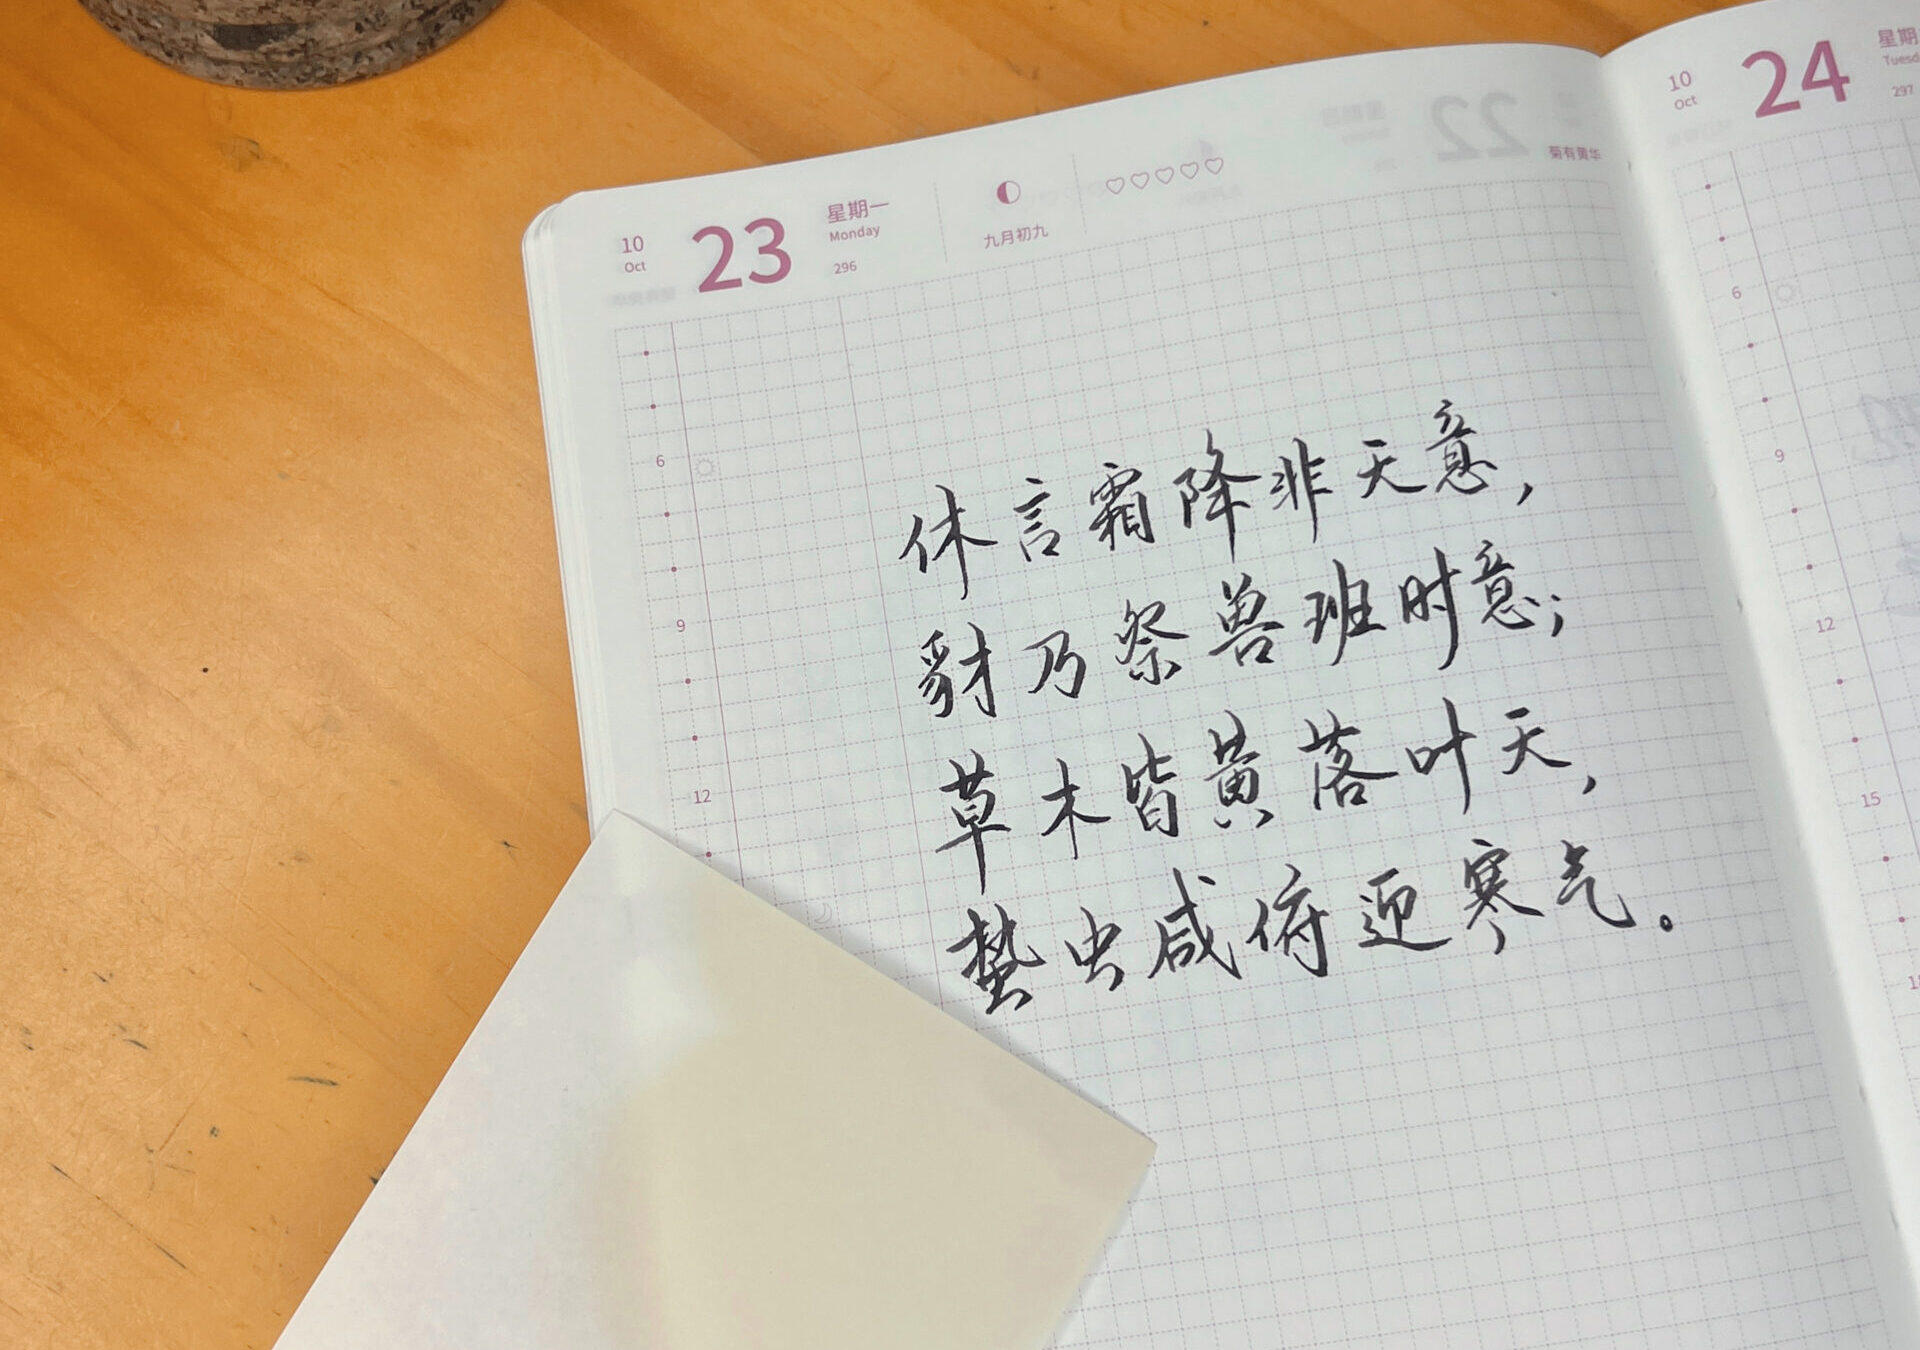 10
Oct
23
星期一
Monday
296
九月初九
菊有黄华
6
9
12
休言霜降非天意，
豺乃祭兽班时意；
草木皆黄落叶天，
蛰虫咸俯迎寒气。
10
Oct
24
星期
297
6
9
12
15